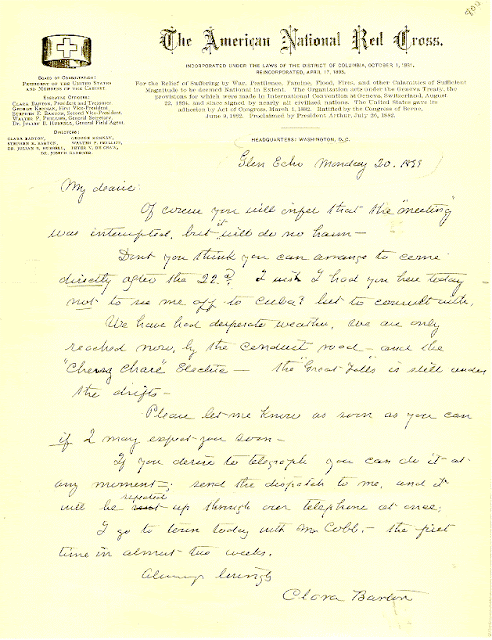 The American National Red Cross.
INCORPORATED UNDER THE LAWS OF THE DISTRICT OF COLUMBIA, OCTOBER 1, 1881.
REINCORPORATED, APRIL 17, 1893.
For the Relief of Suffering by War, Pestilence, Famine, Flood, Fires, and other Calamities of Sufficient
Magnitude to be deemed National in Extent. The Organization acts under the Geneva Treaty, the
provisions for which were made in International Convention at Geneva, Switzerland, August
22, 1864, and since signed by nearly all civilized nations. The United States gave its
adhesion by Act of Congress, March 1, 1882. Ratified by the Congress of Berne,
June 9, 1882. Proclaimed by President Arthur, July 26, 1882.
BOARD OF CONSULTATION:
PRESIDENT OF THE UNITED STATES
AND MEMBERS OF THE CABINET.
EXECUTIVE OFFICERS:
CLARA BARTON, President and Treasurer.
GEORGE KENNAN, First Vice-President.
STEPHEN E. BARTON, Second Vice-President.
WALTER P. PHILLIPS, General Secretary.
DR. JULIAN B. HUBBELL, General Field Agent.
DIRECTORS:
CLARA BARTON, GEORGE KENNAN,
STEPHEN E. BARTON, WALTER P. PHILLIPS,
DR. JULIAN B. HUBBELL,
DR. JOSEPH GARDNER.
HEADQUARTERS: WASHINGTON, D.C.
Glen Echo Monday 20. 1899
My dearie:
Of course you will infer that the "meeting"
was interrupted, but will do no harm –
Dont you think you can arrange to come
directly after the 22d? I wish I had you here today
not to see me off to Cuba! but to consult with.
We have had desperate weather, we are only
reached now, by the conduit road – and the
"Chevy Chase" Electric – the "Great Falls" is still under
the drifts –
Please let me know as soon as you can
if I may expect you soon –
If you desire to telegraph you can do it at
any moment – send the dispatch to me, and it
will be repeated up through over telephone at once,
I go to town today with Mr Cobb, – the first
time in almost two weeks.
Always lovingly
Clara Barton